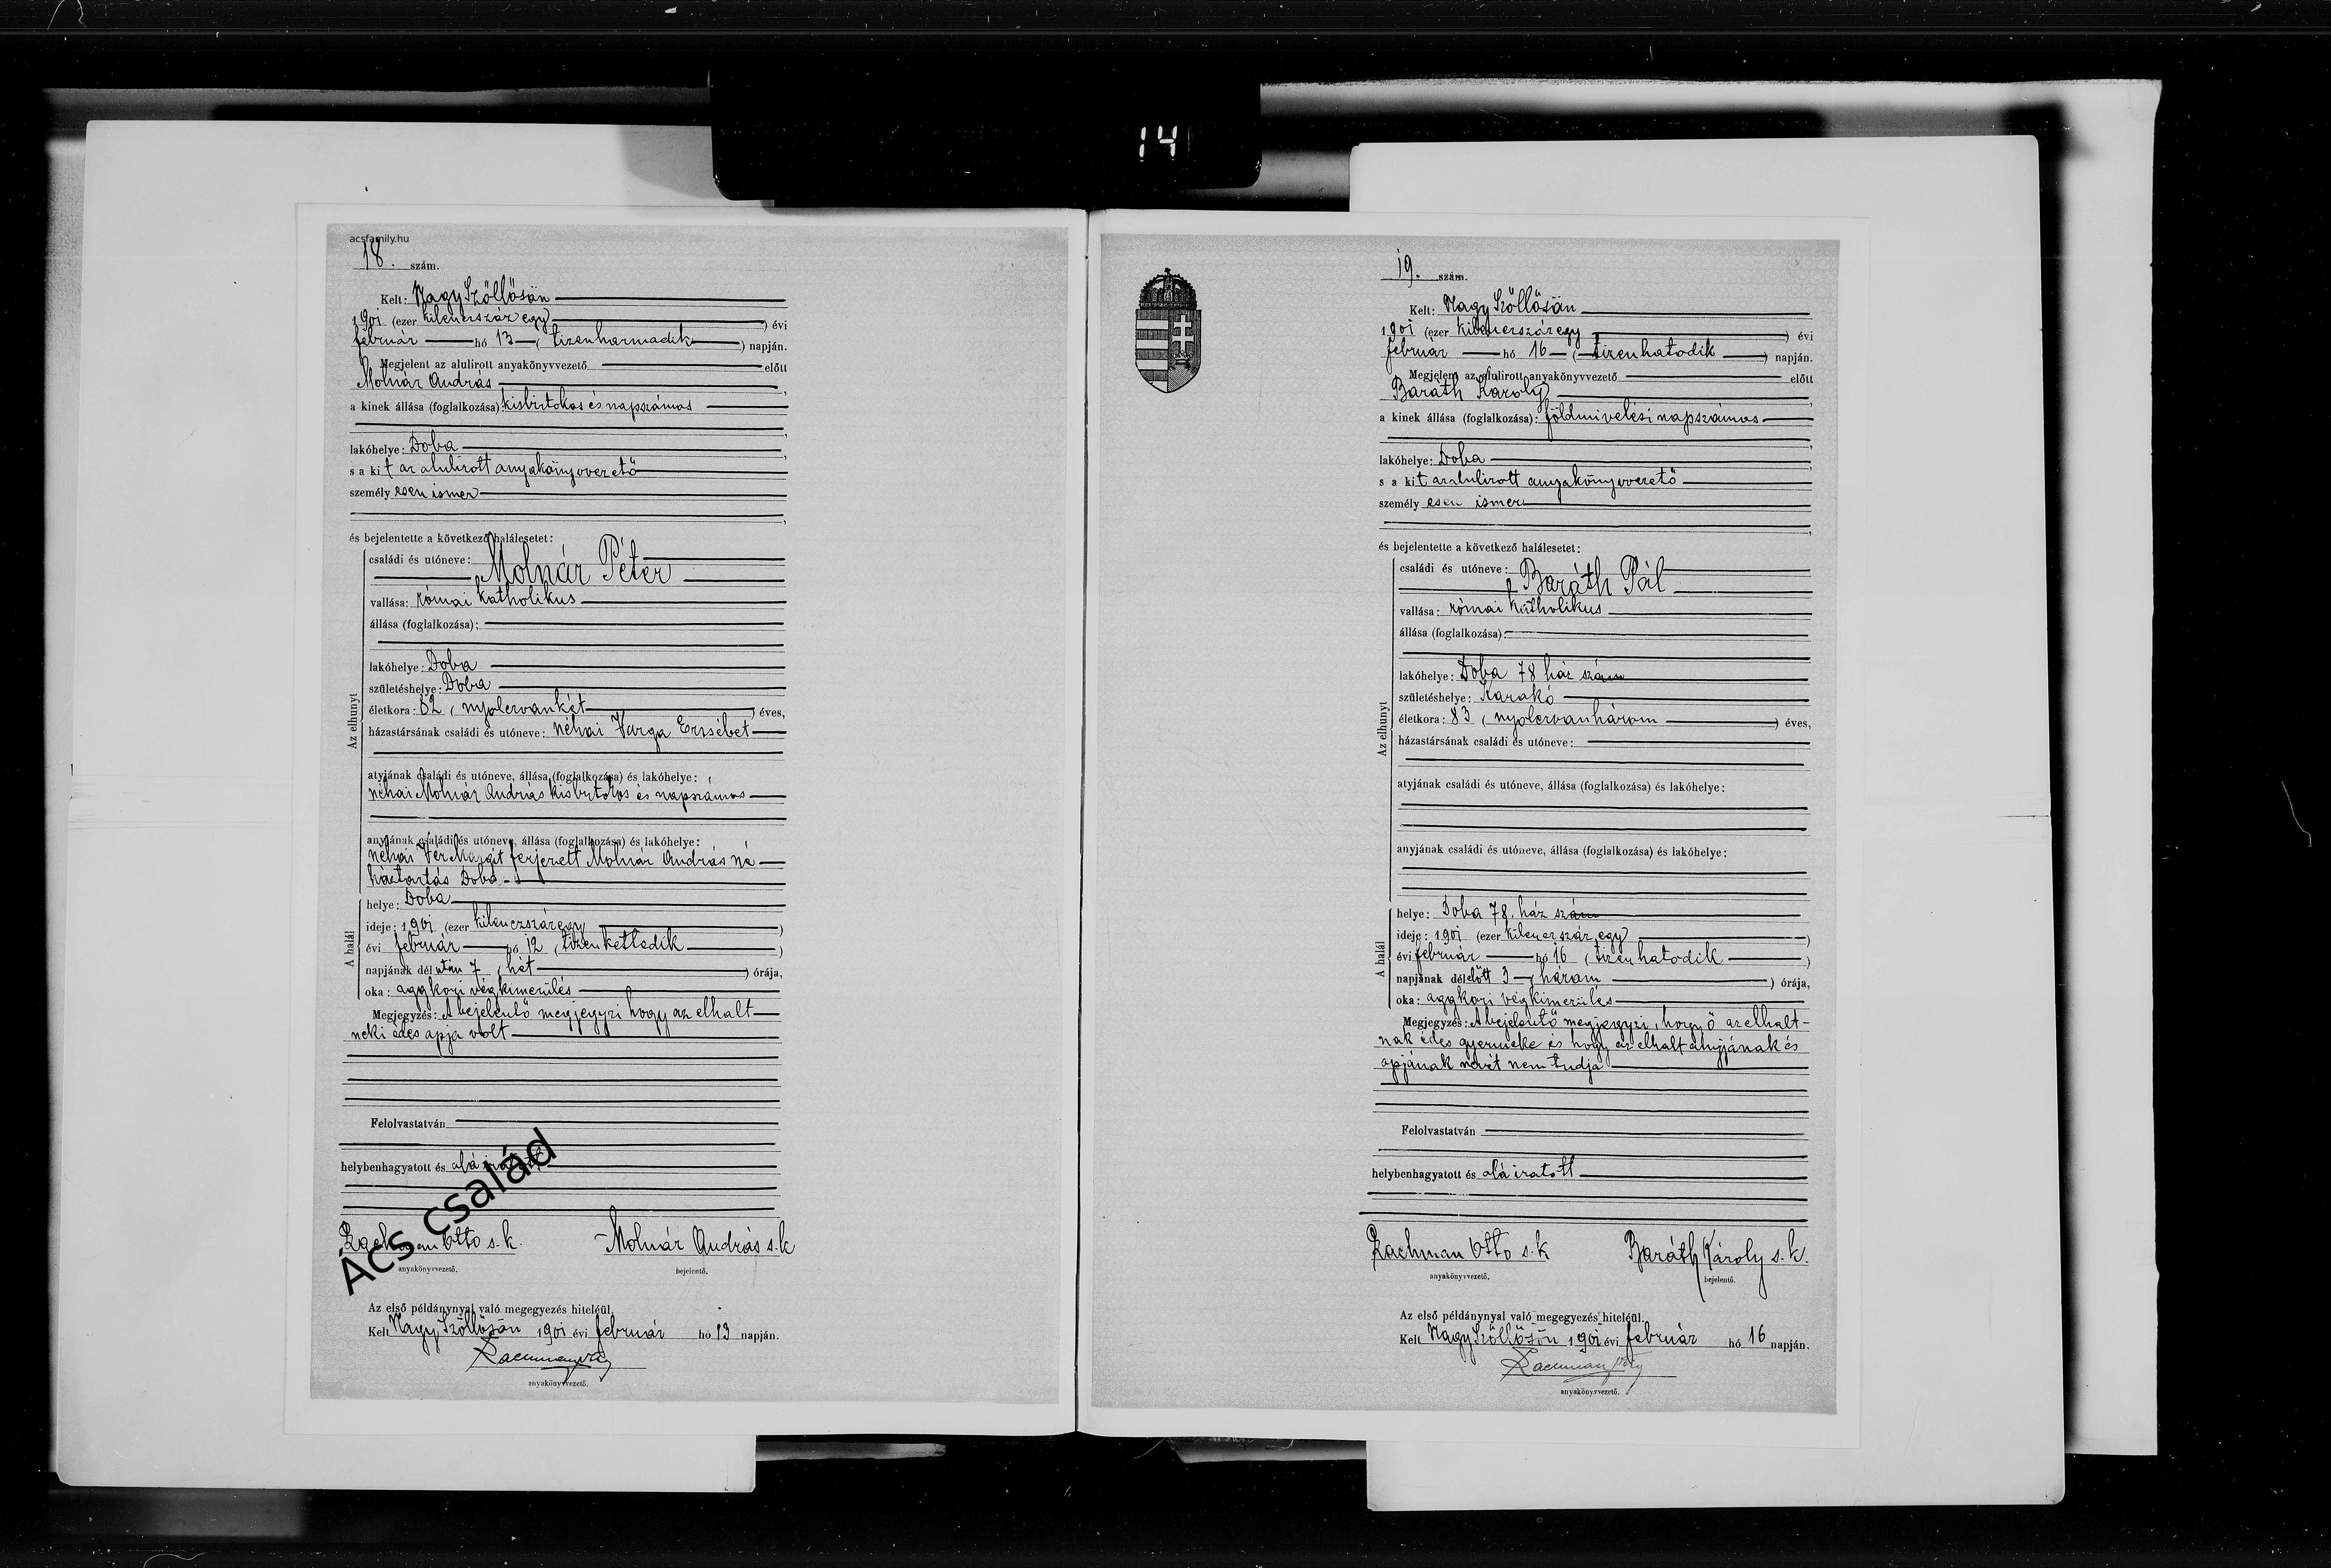 14
acsfamily.hu
18. szám.
Kelt: Nagy Szőllősön
1901 (ezer kilenczszáz egy) évi
február hó 13 (tizenharmadik) napján.
Megjelent az alulirott anyakönyvvezető előtt
Molnár András,
a kinek állása (foglalkozása) kisbirtokos és napszámos
lakóhelye: Doba,
s a kit az alulirott anyakönyvvezető
személyesen ismer
és bejelentette a következő halálesetet:
Az elhunyt
családi és utóneve:
Molnár Péter
vallása: római katholikus
állása (foglalkozása):
lakóhelye: Doba
születéshelye: Doba
életkora: 82 (nyolczvankét) éves,
házastársának családi és utóneve: néhai Varga Erzsébet
atyjának családi és utóneve, állása (foglalkozása) és lakóhelye:
néhai Molnár András kisbirtokos és napszámos
anyjának családi és utóneve, állása (foglalkozása) és lakóhelye:
néhai Margit férjezett Molnár András né
háztartás Doba
A halál
helye: Doba
ideje: 1901 (ezer kilenczszázegy)
évi február hó 12 (tizenkettedik)
napjának délután 7 (hét) órája,
oka: aggkori végkimerülés
Megjegyzés: A bejelentő megjegyzi hogy az elhalt
neki édes apja volt
Felolvastatván
helybenhagyatott és alá iratott
Ács család
Rachman Otto s.k. Molnár András s.k
anyakönyvvezető. bejelentő.
Az első példánynyal való megegyezés hiteléül.
Kelt Nagy Szőllősön 1901 évi február hó 13 napján.
anyakönyvvezető.
19. szám.
Kelt: Nagy Szőllősön
1901 (ezer kilenczszázegy) évi
február hó 16 (tizenhatodik) napján.
Megjelent az alulirott anyakönyvvezető előtt
Baráth Károly,
a kinek állása (foglalkozása): földmivelési napszámos
lakóhelye: Doba,
s a kit az alulirott anyakönyvvezető
személyesen ismer
és bejelentette a következő halálesetet:
Az elhunyt
családi és utóneve:
Baráth Pál
vallása: római katholikus
állása (foglalkozása):
lakóhelye: Doba 78 ház szám
születéshelye: Karakó
életkora: 83 (nyolczvanhárom) éves,
házastársának családi és utóneve:
atyjának családi és utóneve, állása (foglalkozása) és lakóhelye:
anyjának családi és utóneve, állása (foglalkozása) és lakóhelye:
A halál
helye: Doba 78. ház szám
ideje: 1901 (ezer kilenczszáz egy)
évi február hó 16 (tizenhatodik)
napjának délelőtt 3 (három) órája,
oka: aggkori végkimerülés
Megjegyzés: A bejelentő megjegyzi, hogy ő az elhalt-
nak édes gyermeke és hogy az elhalt anyjának és
apjának nevét nem tudja
Felolvastatván
helybenhagyatott és alá iratott
Rachman Otto s.k Baráth Károly s.k.
anyakönyvvezető. bejelentő.
Az első példánynyal való megegyezés hiteléül.
Kelt Nagy Szőllősön 1901 évi február hó 16 napján.
anyakönyvvezető.